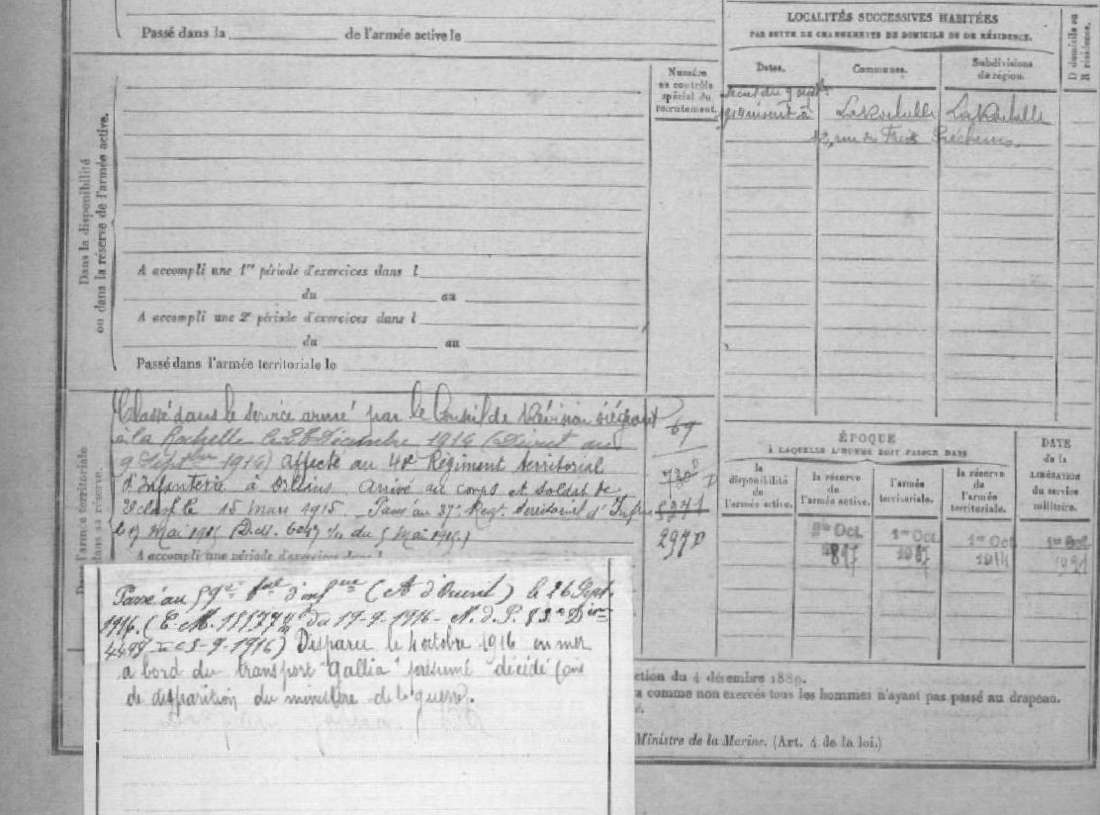 Passé dans la de l'armée active le
LOCALITÉS SUCCESSIVES HABITÉES
PAR SUITE DE CHANGEMENTS DE DOMICILE OU DE RÉSIDENCE.
Dates. Communes. Subdivisions de région. D domicile ou R résidence.
Numéro au contrôle spécial du recrutement.
9 sept
La Rochelle La Rochelle
rue des
Dans la disponibilité
ou dans la réserve de l'armée active.
A accompli une 1re période d'exercices dans l
du au
A accompli une 2e période d'exercices dans l
du au
Passé dans l'armée territoriale le
Dans l'armée territoriale
dans sa réserve.
Classé dans le service armé par le Conseil de Révision siégeant
à la Rochelle le 28 Décembre 1914 (Décret du
9 Septbre 1914) Affecté au 40e Régiment territorial
d'Infanterie à Orléans Arrivé au corps et soldat de
2e classe le 15 mars 1915. Passé au 37e Régt territorial d'Infrie
le 17 Mai 1915 (Déci. du 5 Mai 1915)
A accompli une période d'exercices dans l
69
738 D
297 D
ÉPOQUE
À LAQUELLE L'HOMME DOIT PASSER DANS
la disponibilité de l'armée active. la réserve de l'armée active. l'armée territoriale. la réserve de l'armée territoriale.
DATE de la LIBÉRATION du service militaire.
1er Oct. 1er Oct 1er Oct
Passé au d'infrie (A. d'Orient) le 26 Sept.
1916. (E.M. du 17-9-1916 - N.d.P.
5-9-1916) Disparu le 4 octobre 1916 en mer
à bord du transport "Gallia" présumé "décédé (avis
de disparition du ministère de la guerre).
ction du 4 décembre 1889.
comme non exercés tous les hommes n'ayant pas passé au drapeau.
Ministre de la Marine. (Art. 4 de la loi.)